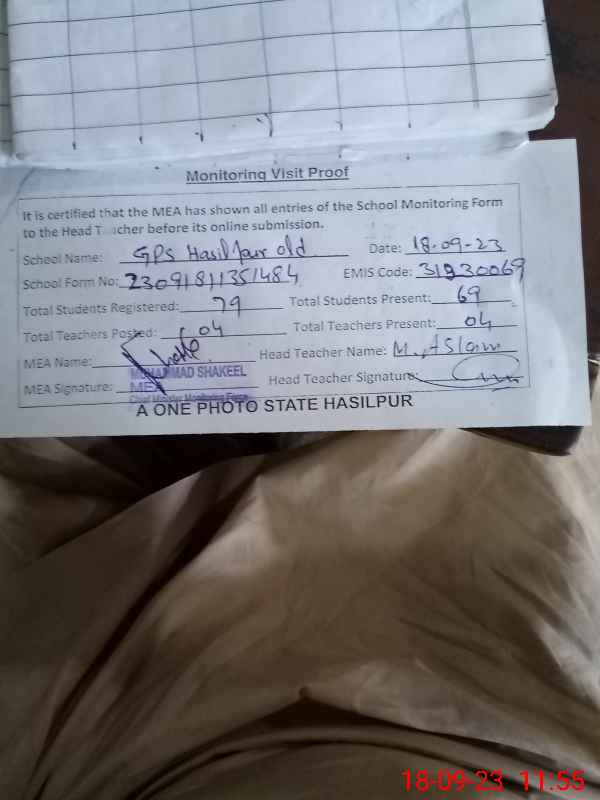 Monitoring Visit Proof
It is certified that the MEA has shown all entries of the School Monitoring Form
to the Head Teacher before its online submission.
School Name: GPS Hasilpur old Date: 18-09-23
School Form No: 23091811351484 EMIS Code: 31230069
Total Students Registered: 79 Total Students Present: 69
Total Teachers Posted: 04 Total Teachers Present: 04
MEA Name: Head Teacher Name: M. Aslam
MUHAMMAD SHAKEEL
MEA Signature: MEA Head Teacher Signature:
Chief Minister Monitoring Force
A ONE PHOTO STATE HASILPUR
18-09-23 11:55